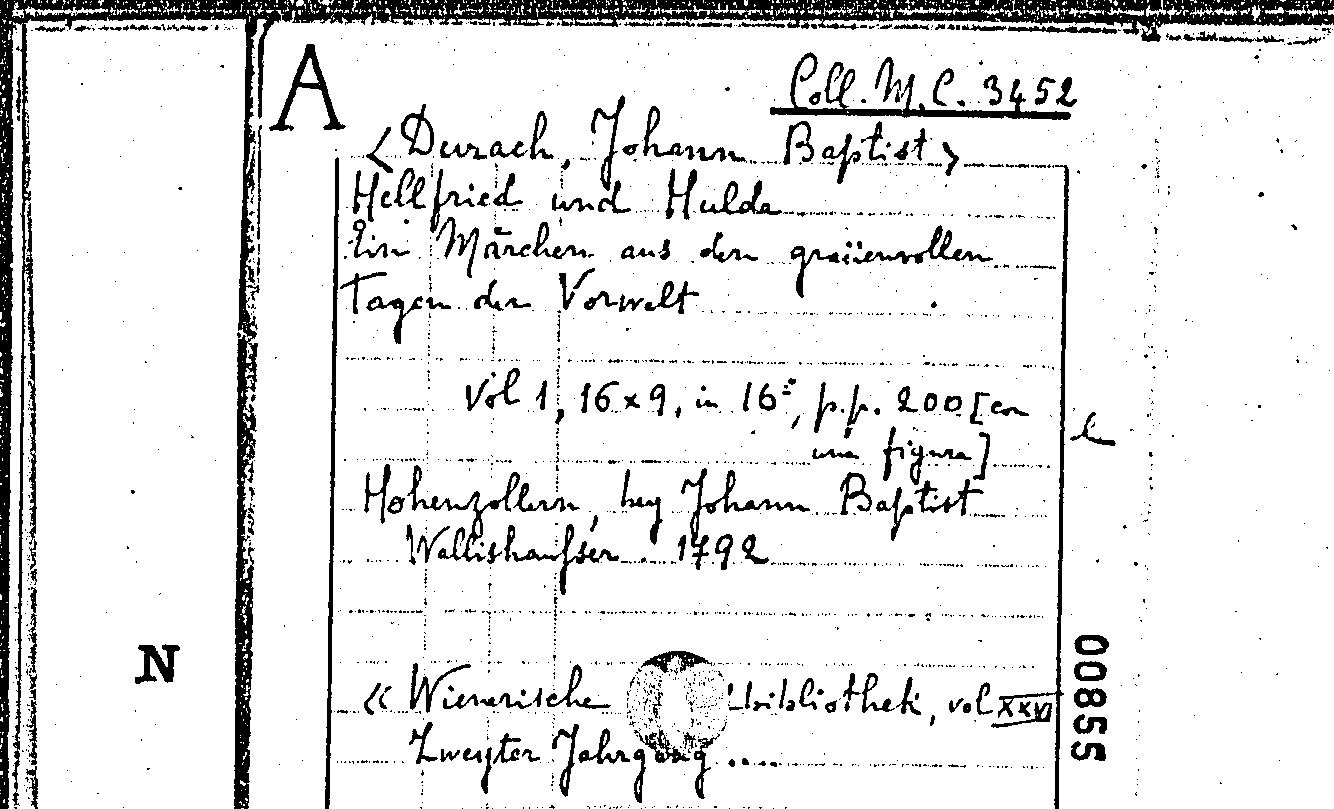 A
Coll. M. C. 3452
<Durach, Johann Baptist>
Hellfried und Hulda
Ein Märchen aus den graüenvollen
Tagen der Vorwelt
Vol 1, 16x9, in 16º, p.p. 200 [con
una figura]
Hohenzollern, bey Johann Baptist
Wallishaufser. 1792
N
« Wienerische bibliothek, vol XXVI
Zweyter Jahrgang ....
00855